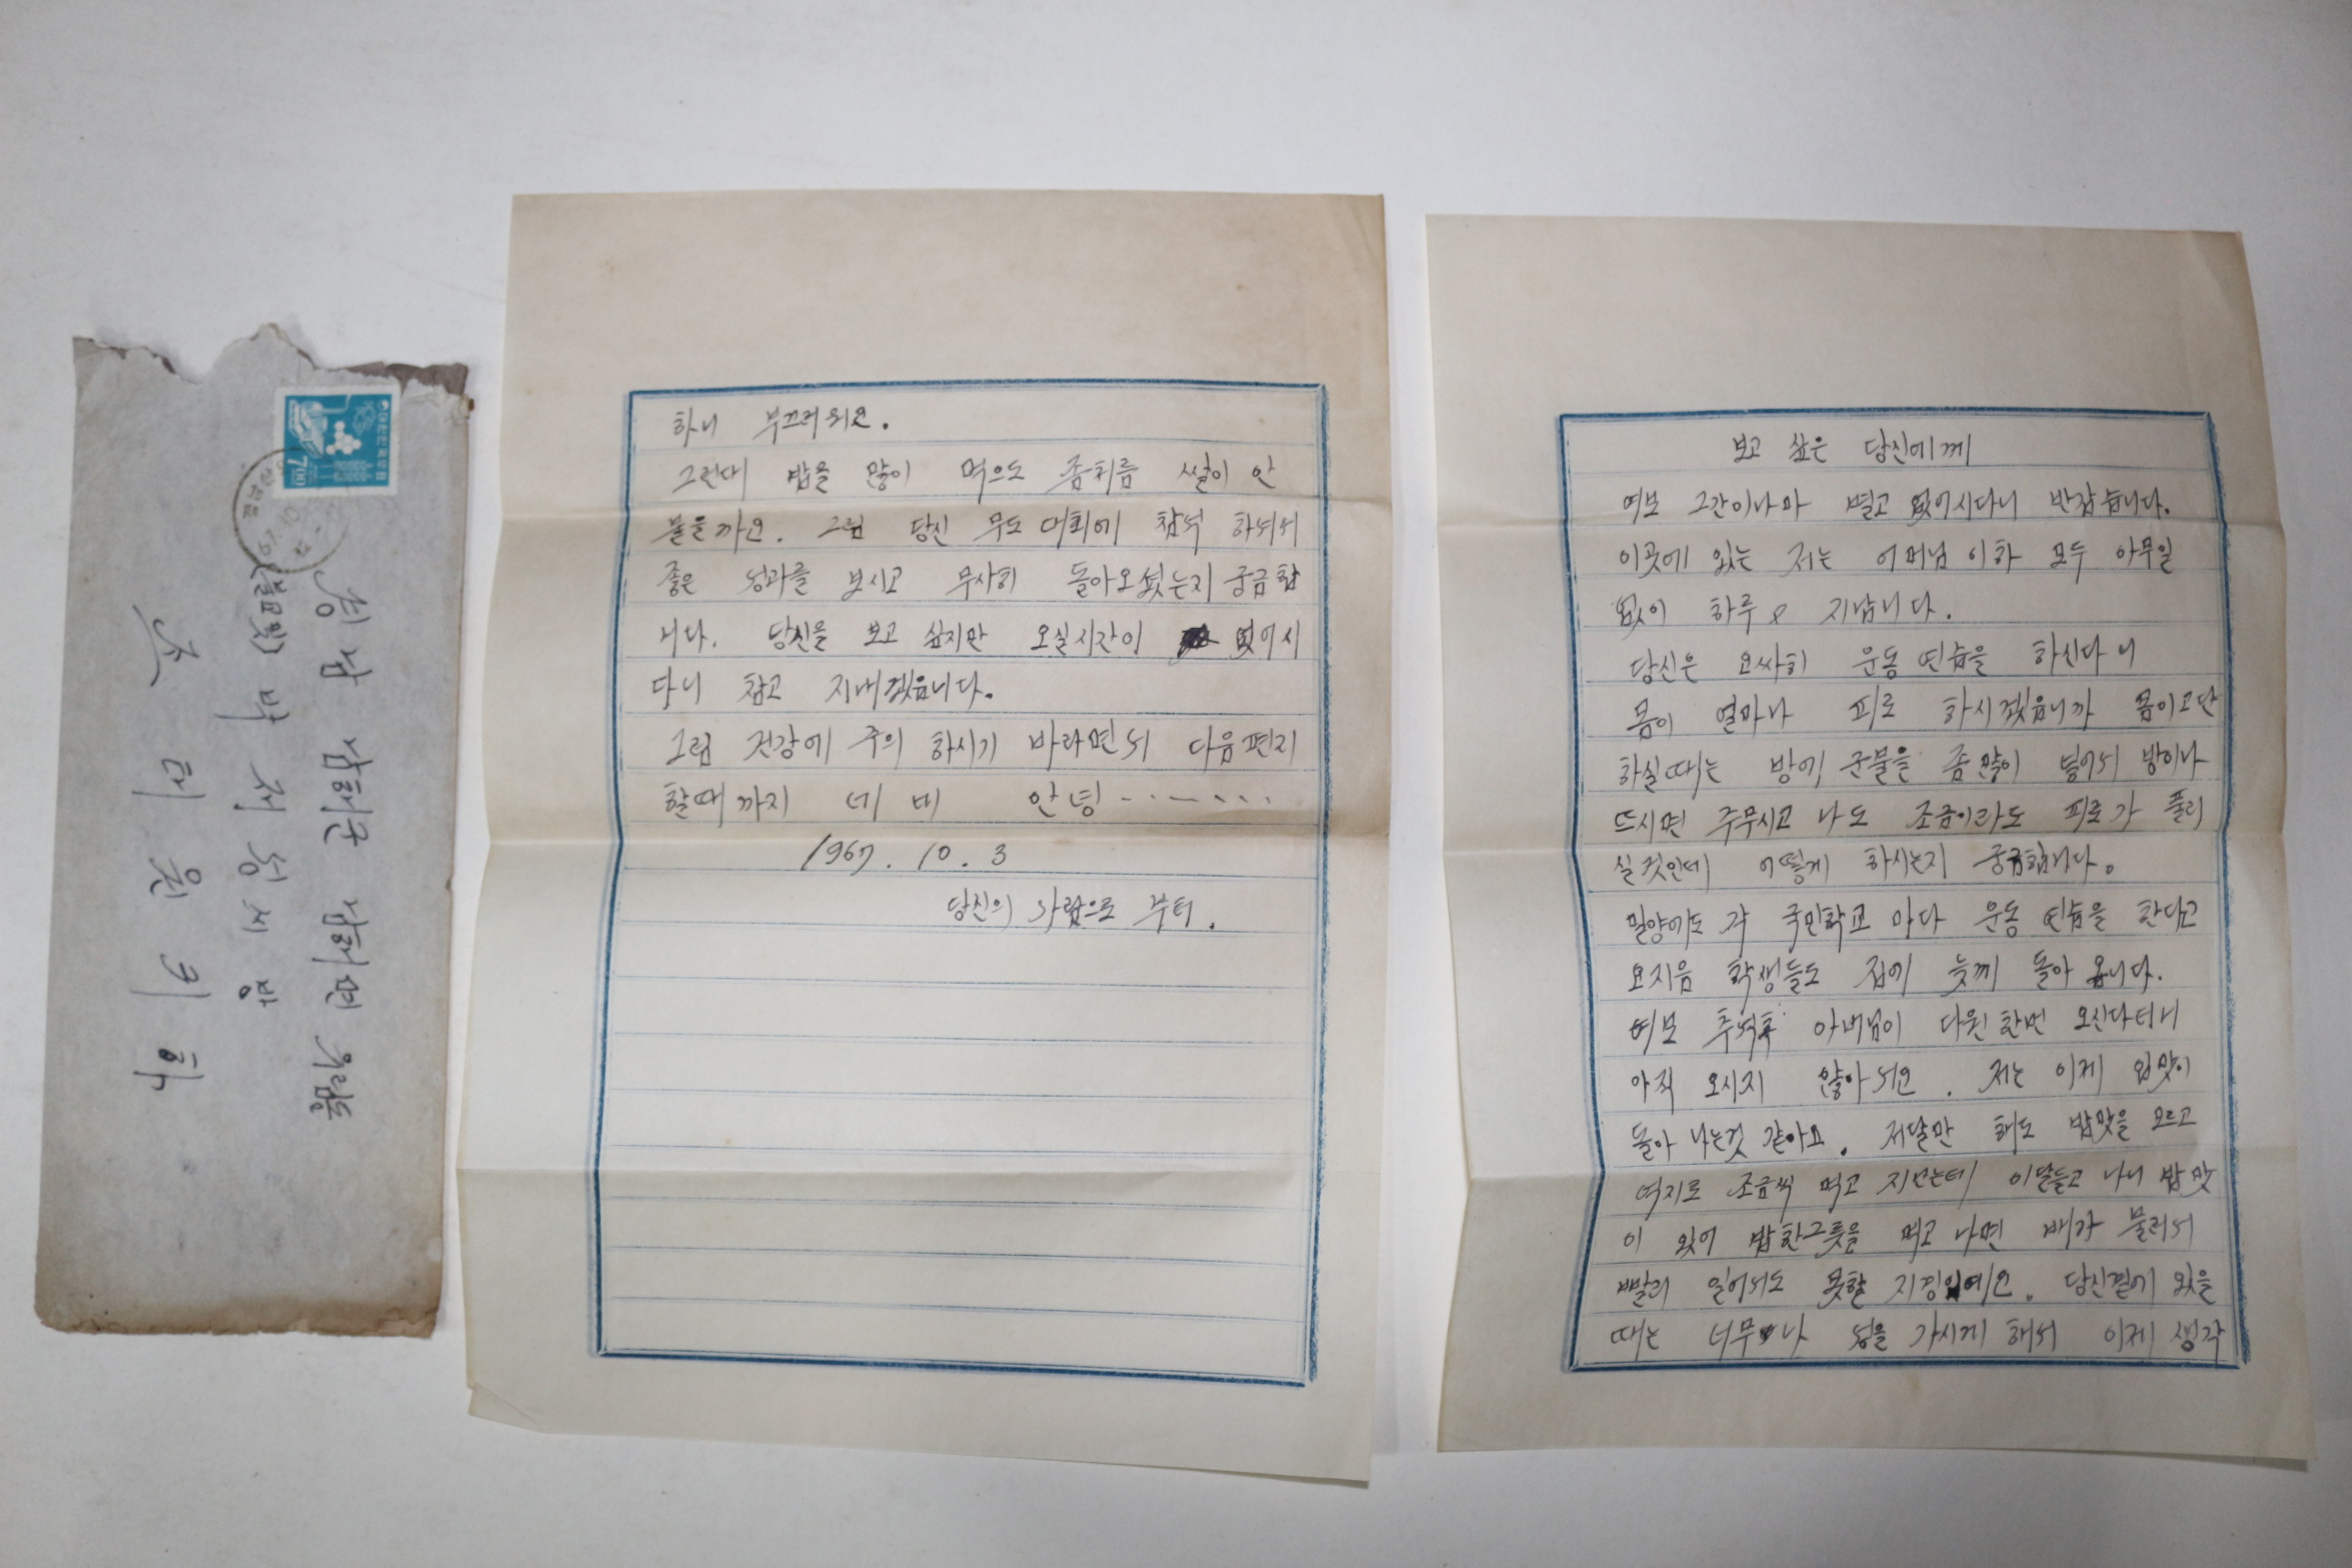 보고 싶은 당신에께
여보 그간이나마 별고 없어시다니 반갑습니다.
이곳에 있는 저는 어머님 이하 모두 아무일
없이 하루 지납니다.
당신은 요싸히 운동 연습을 하신다니
몸이 얼마나 피로 하시겠읍니까 몸이고단
하실때는 방에 군불을 좀많이 넣어서 방이나
뜨시면 주무시고 나도 조금이라도 피로가 풀리
실것인데 어떻게 하시는지 궁금합니다.
밀양에도 각 국민학교 마다 운동 연습을 한다고
요지음 학생들도 집에 늦끼 돌아 옵니다.
여보 추석후 아버님이 다원한번 오신다터니
아직 오시지 않아서요. 저는 이제 입맛이
돌아 나는것 같아요. 저달만 해도 밥맛을 모르고
억지로 조금씩 먹고 지넌는데 이달들고 나니 밥맛
이 있어 밥한그릇을 먹고 나면 배가 불러서
빨리 일어서도 못할 지경이에요. 당신곁에 있을
때는 너무나 성을 가시게 해서 이제 생각
하니 부끄러워요.
그런대 밥을 많이 먹으도 좀처름 쌀이 안
불을까요. 그럼 당신 무도 대회에 참석 하셔서
좋은 성과를 보시고 무사히 돌아오셨는지 궁금합
니다. 당신을 보고 싶지만 오실시간이 없어시
다니 참고 지내겠읍니다.
그럼 건강에 주의 하시기 바라면서 다음편지
할때까지 내내 안녕
1967. 10. 3
당신의 사람으로 부터.
대한민국우표
7.00
경남 남해군 남해면 유림동
(봉모맛) 박 서 성 씨 방
조 태 원 귀 하